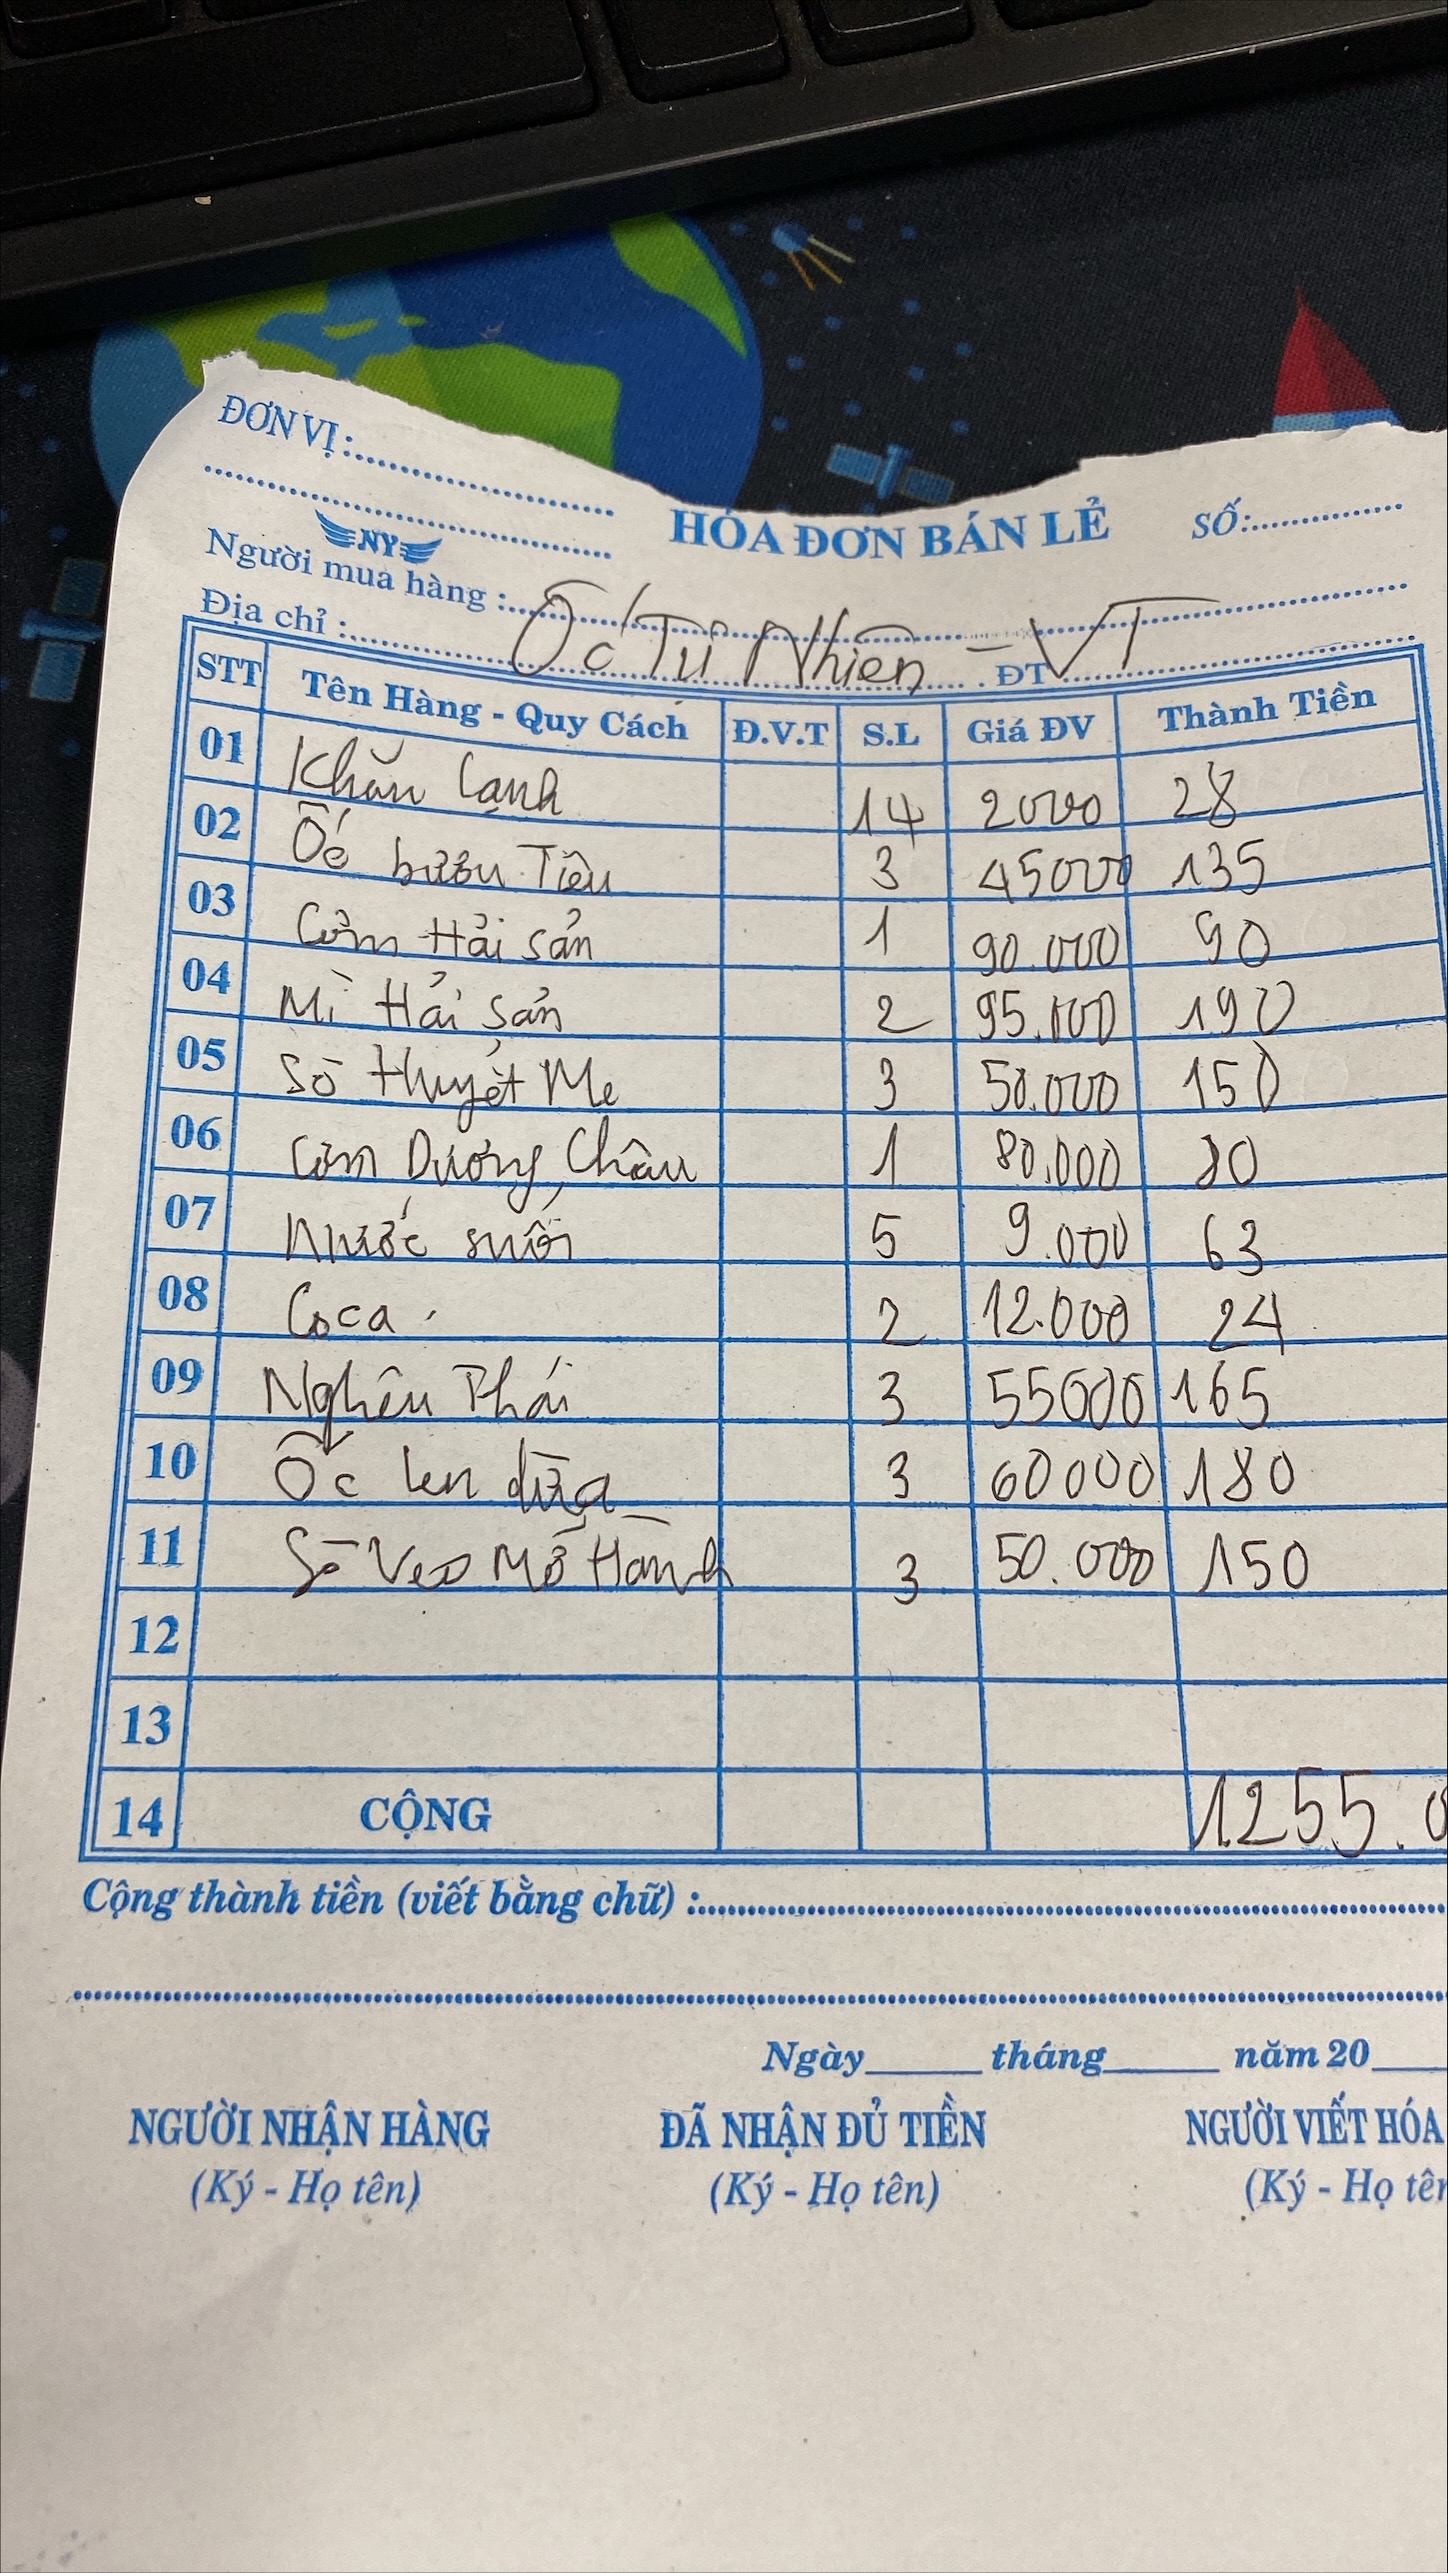 ĐƠN VỊ:
HÓA ĐƠN BÁN LẺ SỐ:
NY
Người mua hàng :
Ốc Tự Nhiên - VT
Địa chỉ : ĐT
STT Tên Hàng - Quy Cách Đ.V.T S.L Giá ĐV Thành Tiền
01 Khăn lạnh 14 2000 28
02 Ốc bươu Tiêu 3 45000 135
03 Cơm Hải sản 1 90.000 90
04 Mì Hải sản 2 95.000 190
05 Sò Huyết Me 3 50.000 150
06 Cơm Dương Châu 1 80.000 80
07 Nước suối 5 9.000 63
08 Coca. 2 12.000 24
09 Nghêu Thái 3 55000 165
10 Ốc len dừa 3 60000 180
11 Sò Vẹo Mỡ Hành 3 50.000 150
12
13
14 CỘNG 1255.0
Cộng thành tiền (viết bằng chữ) :
Ngày tháng năm 20
NGƯỜI NHẬN HÀNG ĐÃ NHẬN ĐỦ TIỀN NGƯỜI VIẾT HÓA
(Ký - Họ tên) (Ký - Họ tên) (Ký - Họ tên